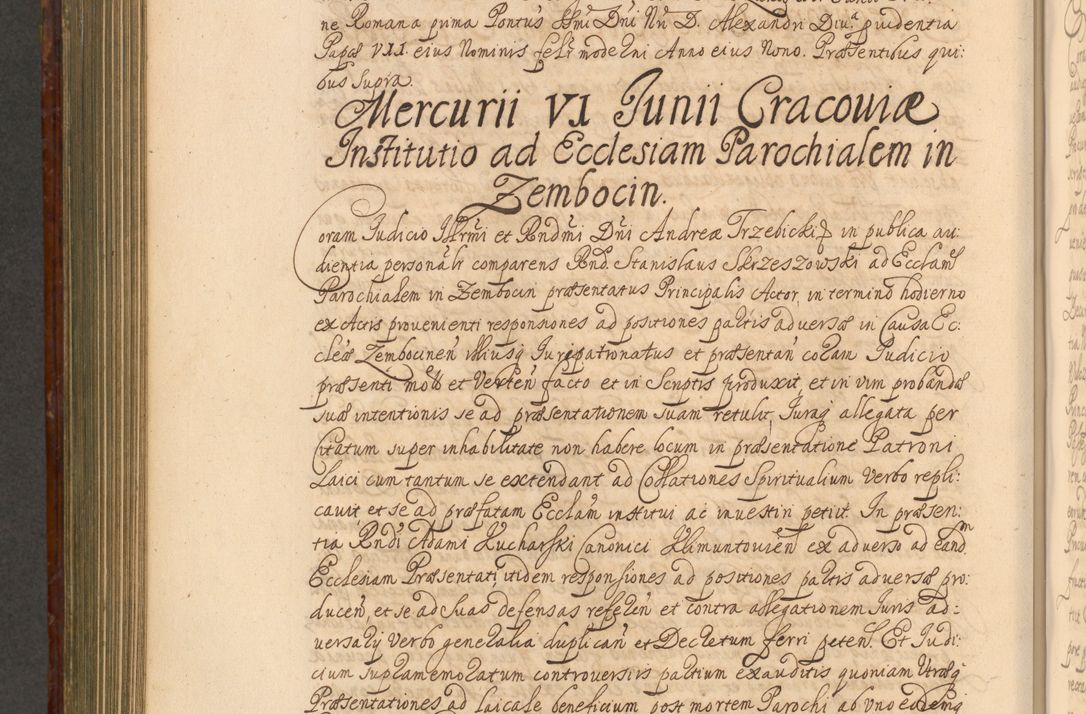 ne Romana prima Pontus SSmi Dni Nri D. Alexandri Diua pudentia
Papæ VII eius Nominis felr moderni Anno eius Nono. Præsentibus qui:
bus supra.
Mercurii VI Junii Cracouiæ
Institutio ad Ecclesiam Parochialem in
Zembocin.
Coram Judicio Illrmi et Rndmi Dni Andreæ Trzebicki in publica au:
dientia personalr comparens Rnd. Stanislaus Skrzeszowski ad Ecclam
Parochialem in Zembocin præsentatus Principalis Actor, in termino hodierno
ex Actis provenienti responsiones ad positiones partis adversæ in Causa Ec:
cleæ Zembocinen illiusq Jurispationatus et præsentan coram Judicio
præsenti moto et Verten facto et in Scriptis produxit, et in vim probandæ
suæ intentionis se ad præsentationem suam retulit, Juraq allegata per
Citatum super inhabilitate non habere locum in præsentatione Patroni
Laici cum tantum se extendant ad Collationes Spiritualium Verbo repli:
cavit, et se ad præfatam Ecclam institui ac investiri petiit. In præsen:
tia Rndi Adami Kucharski Canonici Klimuntovien ex adverso ad eand m
Ecclesiam Præsentati, itidem responsiones ad positiones partis adversæ pro:
ducen, et se ad suas defensas referen et contra allegationem Juris ad:
versarij Verbo generalia duplican et Decretum ferri peten. Et Judi:
cium supramemoratum controversiis partium exauditis quoniam Utræq
Præsentationes ad laicale beneficium post mortem Parochi ab uno eodemq